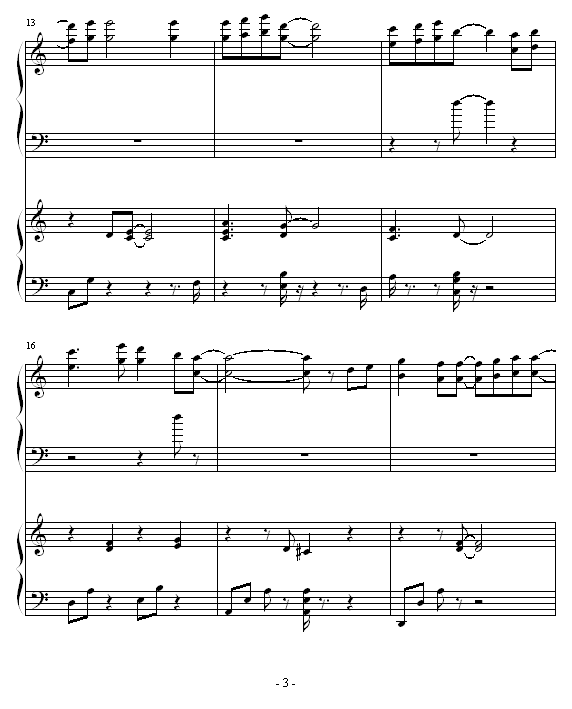 13
16
- 3 -